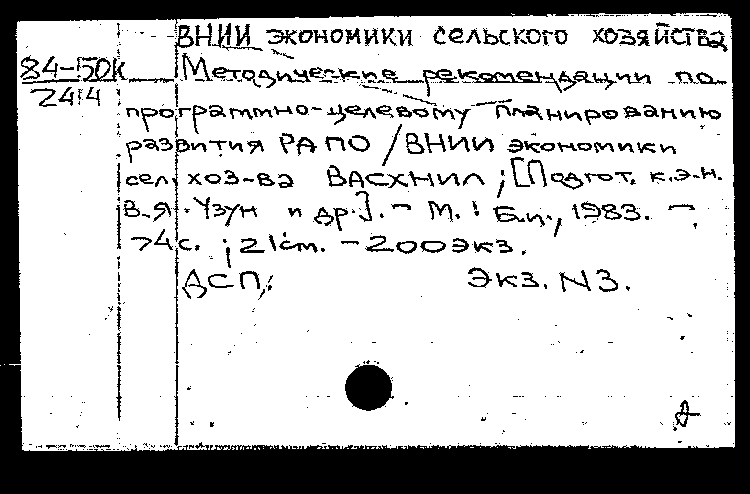 ВНИИ экономики сельского хозяйства
84-50к Методические рекомендации по
2414
программно-целевому планированию
развития РАПО / ВНИИ экономики
сел. хоз-ва ВАСХНИЛ ; [Подгот. к.э.н.
В.Я. Узун и др.]. - М. : Б.и., 1983. -
74 с. ; 21 см. - 200 экз.
ДСП. Экз. N3.